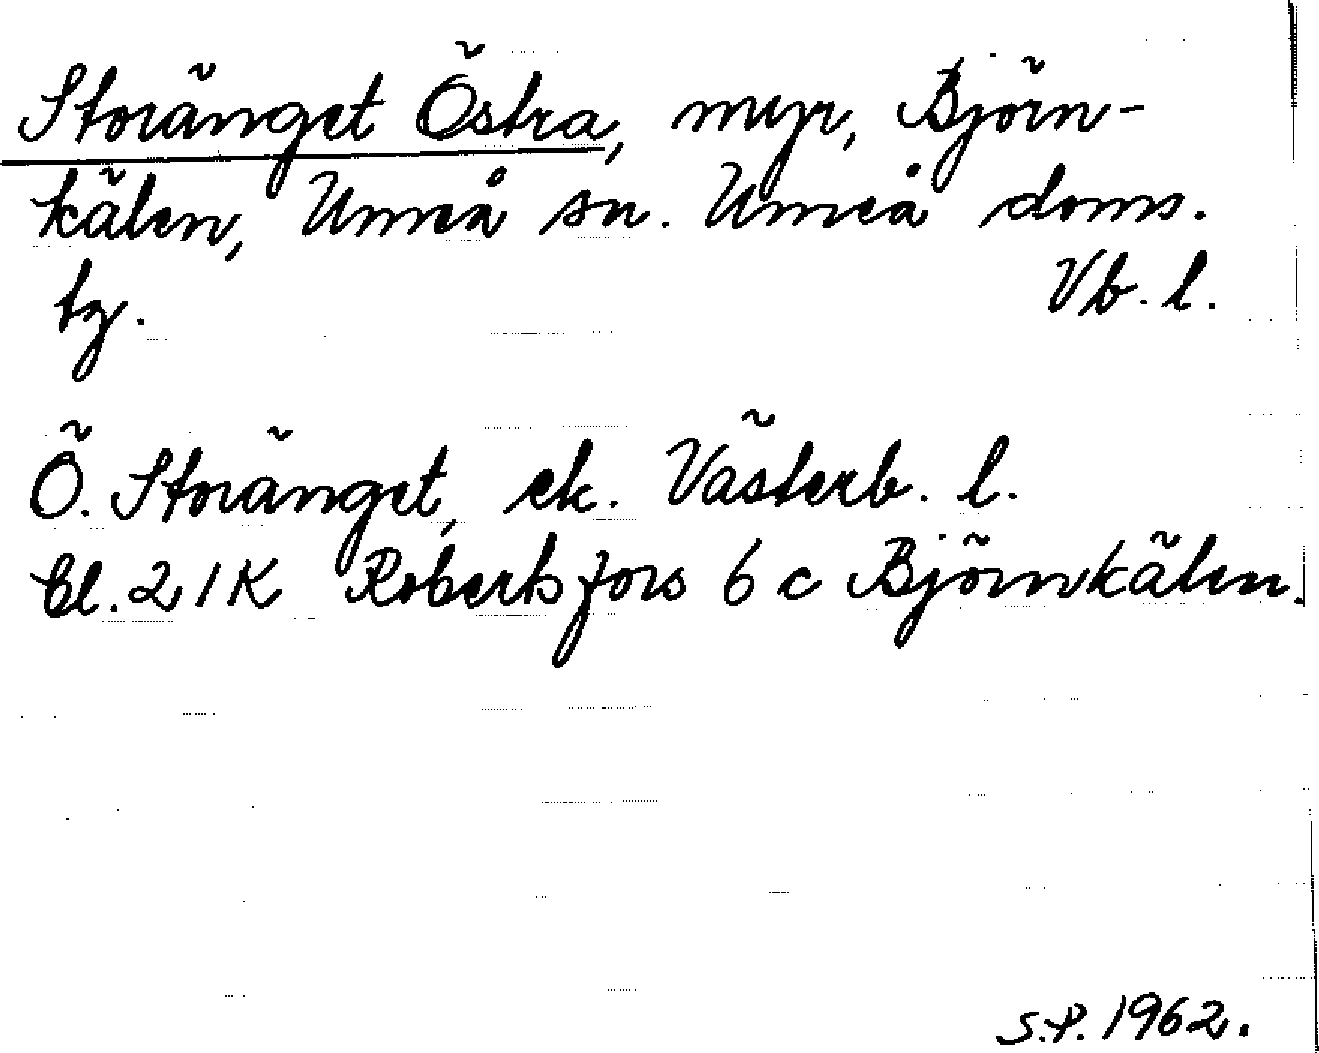 Storänget Östra, myr, Björn-
kälen, Umeå sn. Umeå doms.
tg. Vb. l.
Ö. Storänget, ek. Västerb. l.
bl. 21K Robertsfors 6 c Björnkälen.
S.P. 1962.